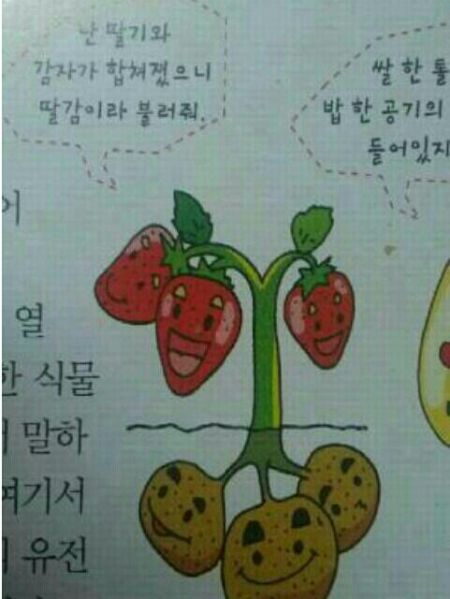 난 딸기와
감자가 합쳐졌으니
딸감이라 불러줘.
쌀 한 톨
밥 한 공기의
들어있지
어
열
한 식물
말하
여기서
유전